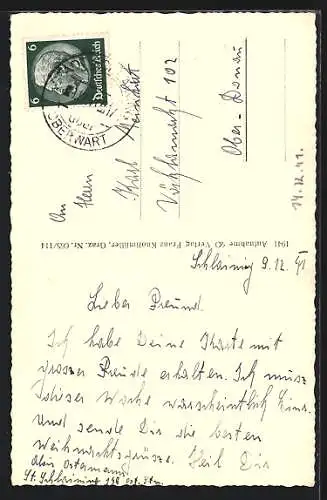 6
Deutsches Reich
6
über
OBERWART
An Herrn
Karl
Meinhart
Vöcklamarkt 102
Ober-Donau
14.12.41.
1941 Aufnahme u. Verlag Franz Knollmüller, Graz. Nr. 675/114
Schlaining 9.12.41
Lieber Freund.
Ich habe Deine Karte mit
grosser Freude erhalten. Ich muss
diser Woche warscheintlich Eins.
Und sende Dir die besten
Weihnachtsgrüsse. Heil Dir
Alois Ostermann
St. Schlaining 140